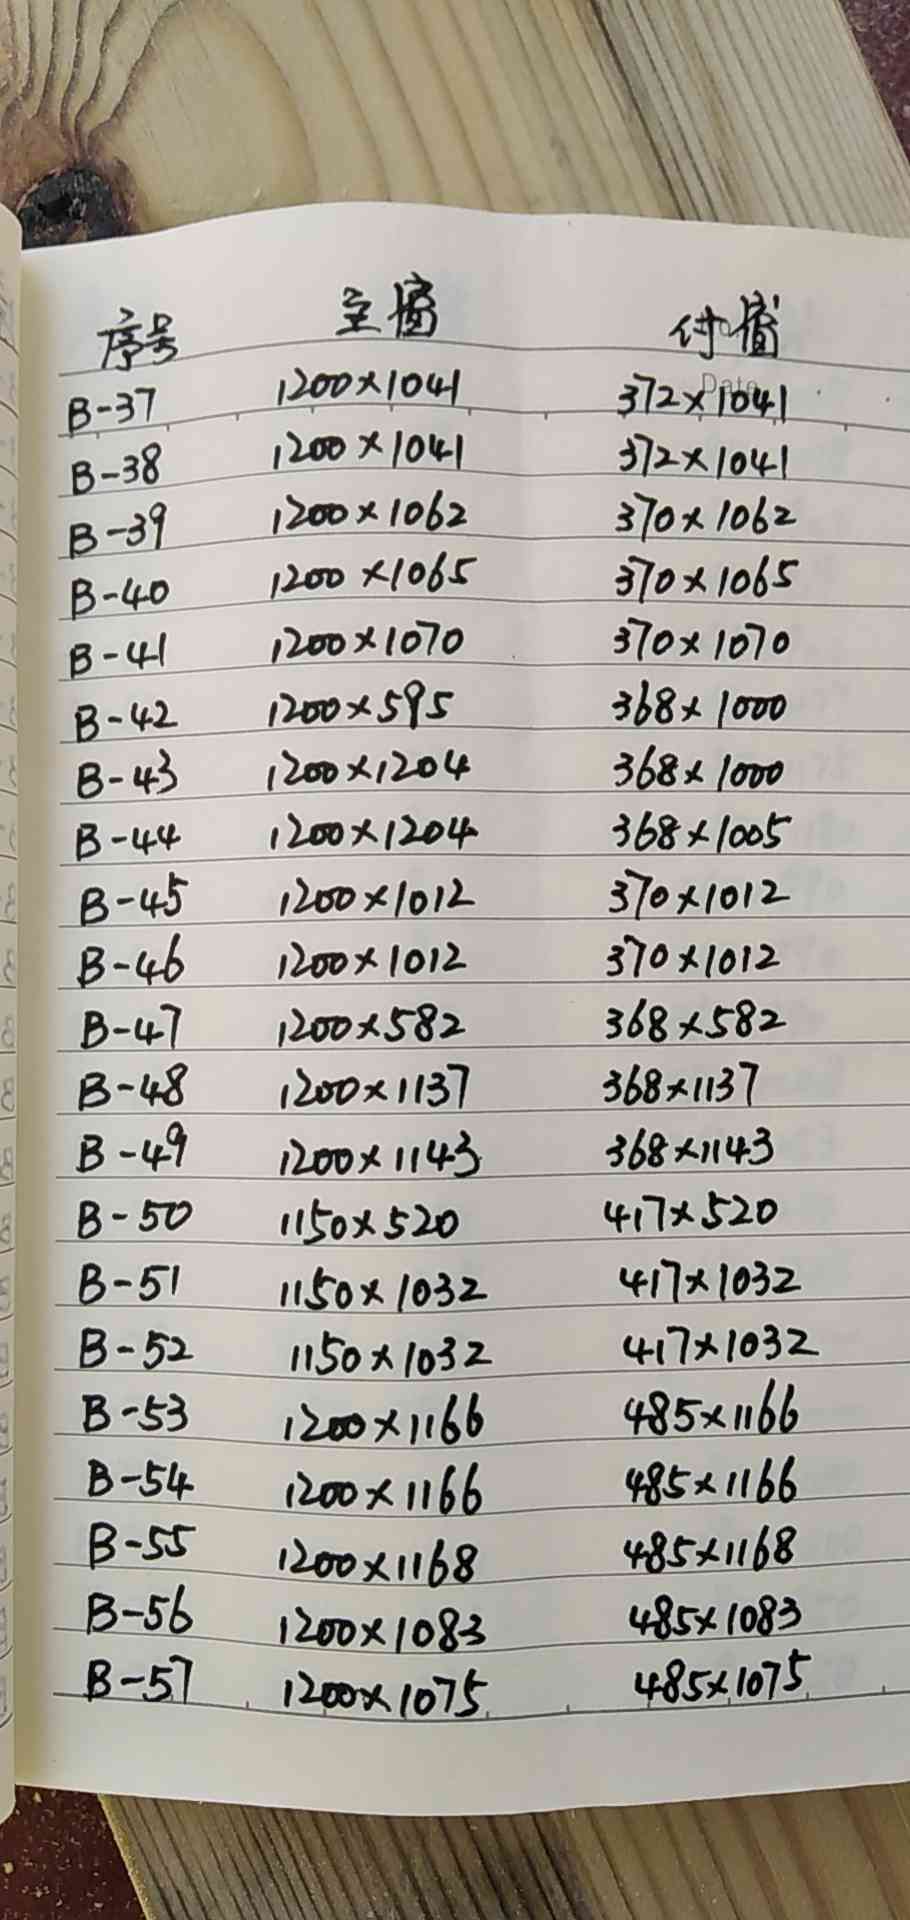 序号 主窗 付窗
Date
B-37 1200×1041 372×1041
B-38 1200×1041 372×1041
B-39 1200×1062 370×1062
B-40 1200×1065 370×1065
B-41 1200×1070 370×1070
B-42 1200×595 368×1000
B-43 1200×1204 368×1000
B-44 1200×1204 368×1005
B-45 1200×1012 370×1012
B-46 1200×1012 370×1012
B-47 1200×582 368×582
B-48 1200×1137 368×1137
B-49 1200×1143 368×1143
B-50 1150×520 417×520
B-51 1150×1032 417×1032
B-52 1150×1032 417×1032
B-53 1200×1166 485×1166
B-54 1200×1166 485×1166
B-55 1200×1168 485×1168
B-56 1200×1083 485×1083
B-57 1200×1075 485×1075